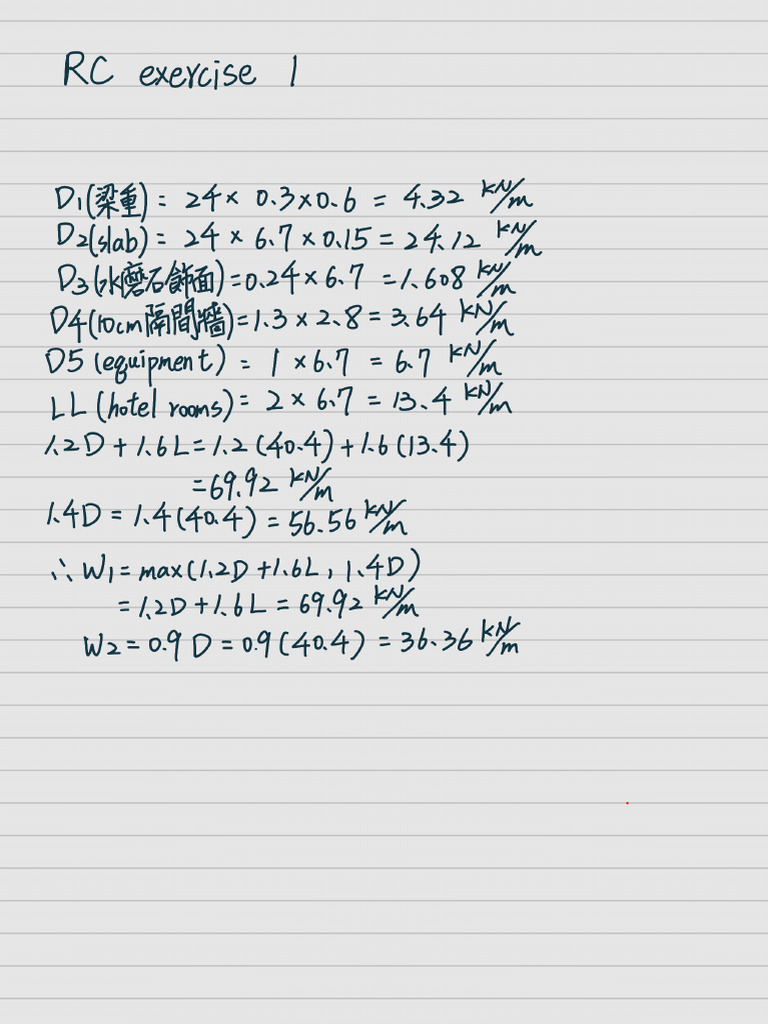 RC exercise 1
D1(梁重) = 24 × 0.3×0.6 = 4.32 kN/m
D2(slab) = 24 × 6.7 × 0.15 = 24.12 kN/m
D3(水磨石飾面)=0.24×6.7 =1.608 kN/m
D4(10cm隔間牆)=1.3×2.8=3.64 kN/m
D5 (equipment) = 1 ×6.7 = 6.7 kN/m
LL (hotel rooms)= 2 × 6.7 = 13.4 kN/m
1.2D + 1.6L = 1.2(40.4)+1.6(13.4)
=69.92 kN/m
1.4D = 1.4(40.4) = 56.56 kN/m
∴ W1 = max(1.2D+1.6L, 1.4D)
= 1.2D+1.6L = 69.92 kN/m
W2 = 0.9 D = 0.9(40.4) = 36.36 kN/m